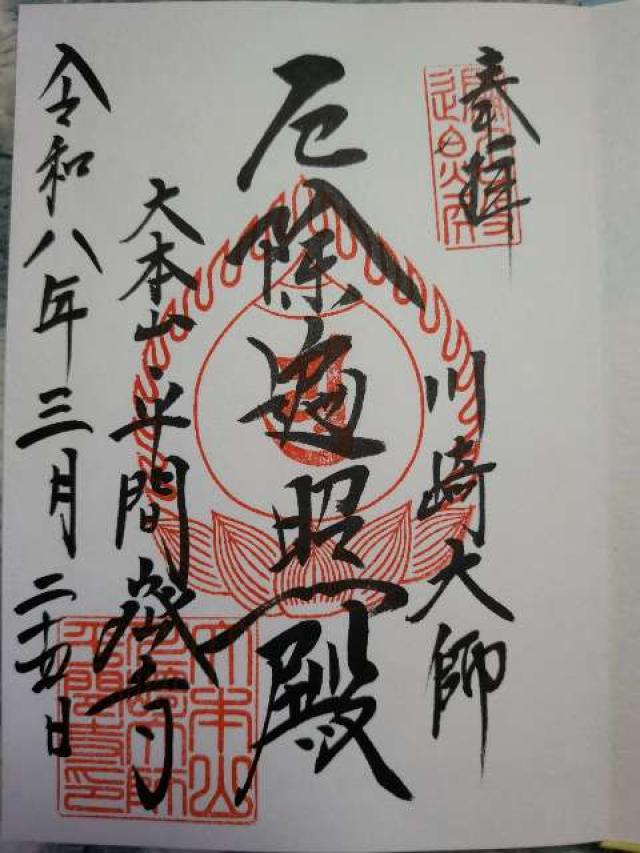 奉拝
川崎大師
厄除遍照殿
大本山・平間寺
令和八年三月二十四日